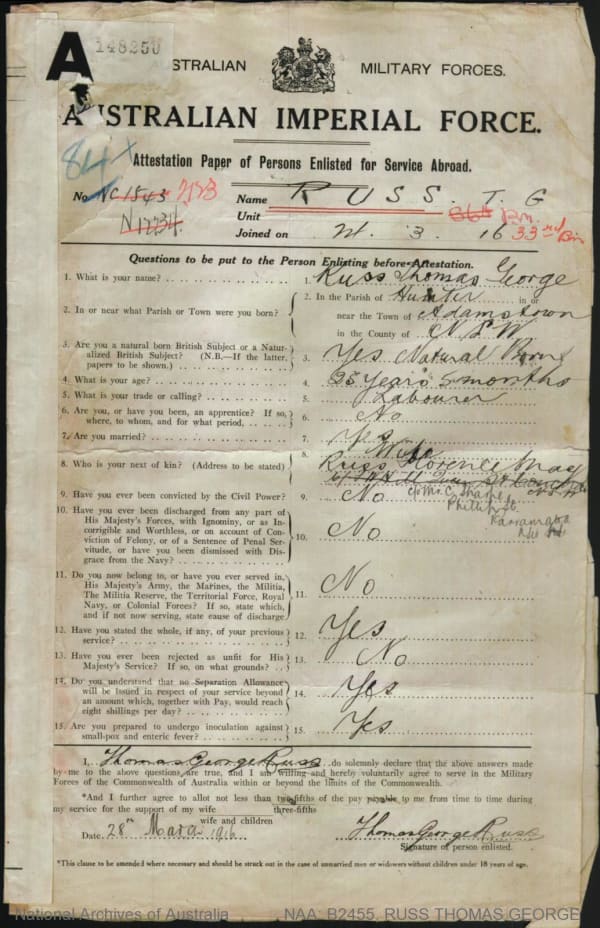 A 148250
AUSTRALIAN MILITARY FORCES.
AUSTRALIAN IMPERIAL FORCE.
84
Attestation Paper of Persons Enlisted for Service Abroad.
No NC1843 Name RUSS. T. G
N17734. Unit Bn.
Joined on 3 16 33rd Bn
Questions to be put to the Person Enlisting before Attestation.
1. What is your name? 1. Russ Thomas George
2. In or near what Parish or Town were you born? 2. In the Parish of Hunter in or
near the Town of Adamstown
in the County of N.S.W.
3. Are you a natural born British Subject or a Natur-
alized British Subject? (N.B.—If the latter,
papers to be shown.) 3. Yes Natural Born
4. What is your age? 4. years 5 months
5. What is your trade or calling? 5. Labourer
6. Are you, or have you been, an apprentice? If so,
where, to whom, and for what period. 6. No
7. Are you married? 7. Yes
8. Who is your next of kin? (Address to be stated) 8. Wife
Russ Florence May
c/o Mr C. Sharpe,
Phillip St
N.S.W.
9. Have you ever been convicted by the Civil Power? 9. No
10. Have you ever been discharged from any part of
His Majesty's Forces, with Ignominy, or as In-
corrigible and Worthless, or on account of Con-
viction of Felony, or of a Sentence of Penal Ser-
vitude, or have you been dismissed with Dis-
grace from the Navy? 10. No
11. Do you now belong to, or have you ever served in,
His Majesty's Army, the Marines, the Militia,
The Militia Reserve, the Territorial Force, Royal
Navy, or Colonial Forces? If so, state which,
and if not now serving, state cause of discharge 11. No
12. Have you stated the whole, if any, of your previous
service? 12. Yes
13. Have you ever been rejected as unfit for His
Majesty's Service? If so, on what grounds? 13. No
14. Do you understand that no Separation Allowance
will be issued in respect of your service beyond
an amount which, together with Pay, would reach
eight shillings per day? 14. Yes
15. Are you prepared to undergo inoculation against
small-pox and enteric fever? 15. Yes
I, Thomas George Russ do solemnly declare that the above answers made
by me to the above questions are true, and I am willing and hereby voluntarily agree to serve in the Military
Forces of the Commonwealth of Australia within or beyond the limits of the Commonwealth.
*And I further agree to allot not less than two-fifths of the pay payable to me from time to time during
three-fifths
my service for the support of my wife
wife and children
Date. 28th March 1916 Thomas George Russ
Signature of person enlisted.
*This clause to be amended where necessary and should be struck out in the case of unmarried men or widowers without children under 18 years of age.
National Archives of Australia NAA: B2455, RUSS THOMAS GEORGE